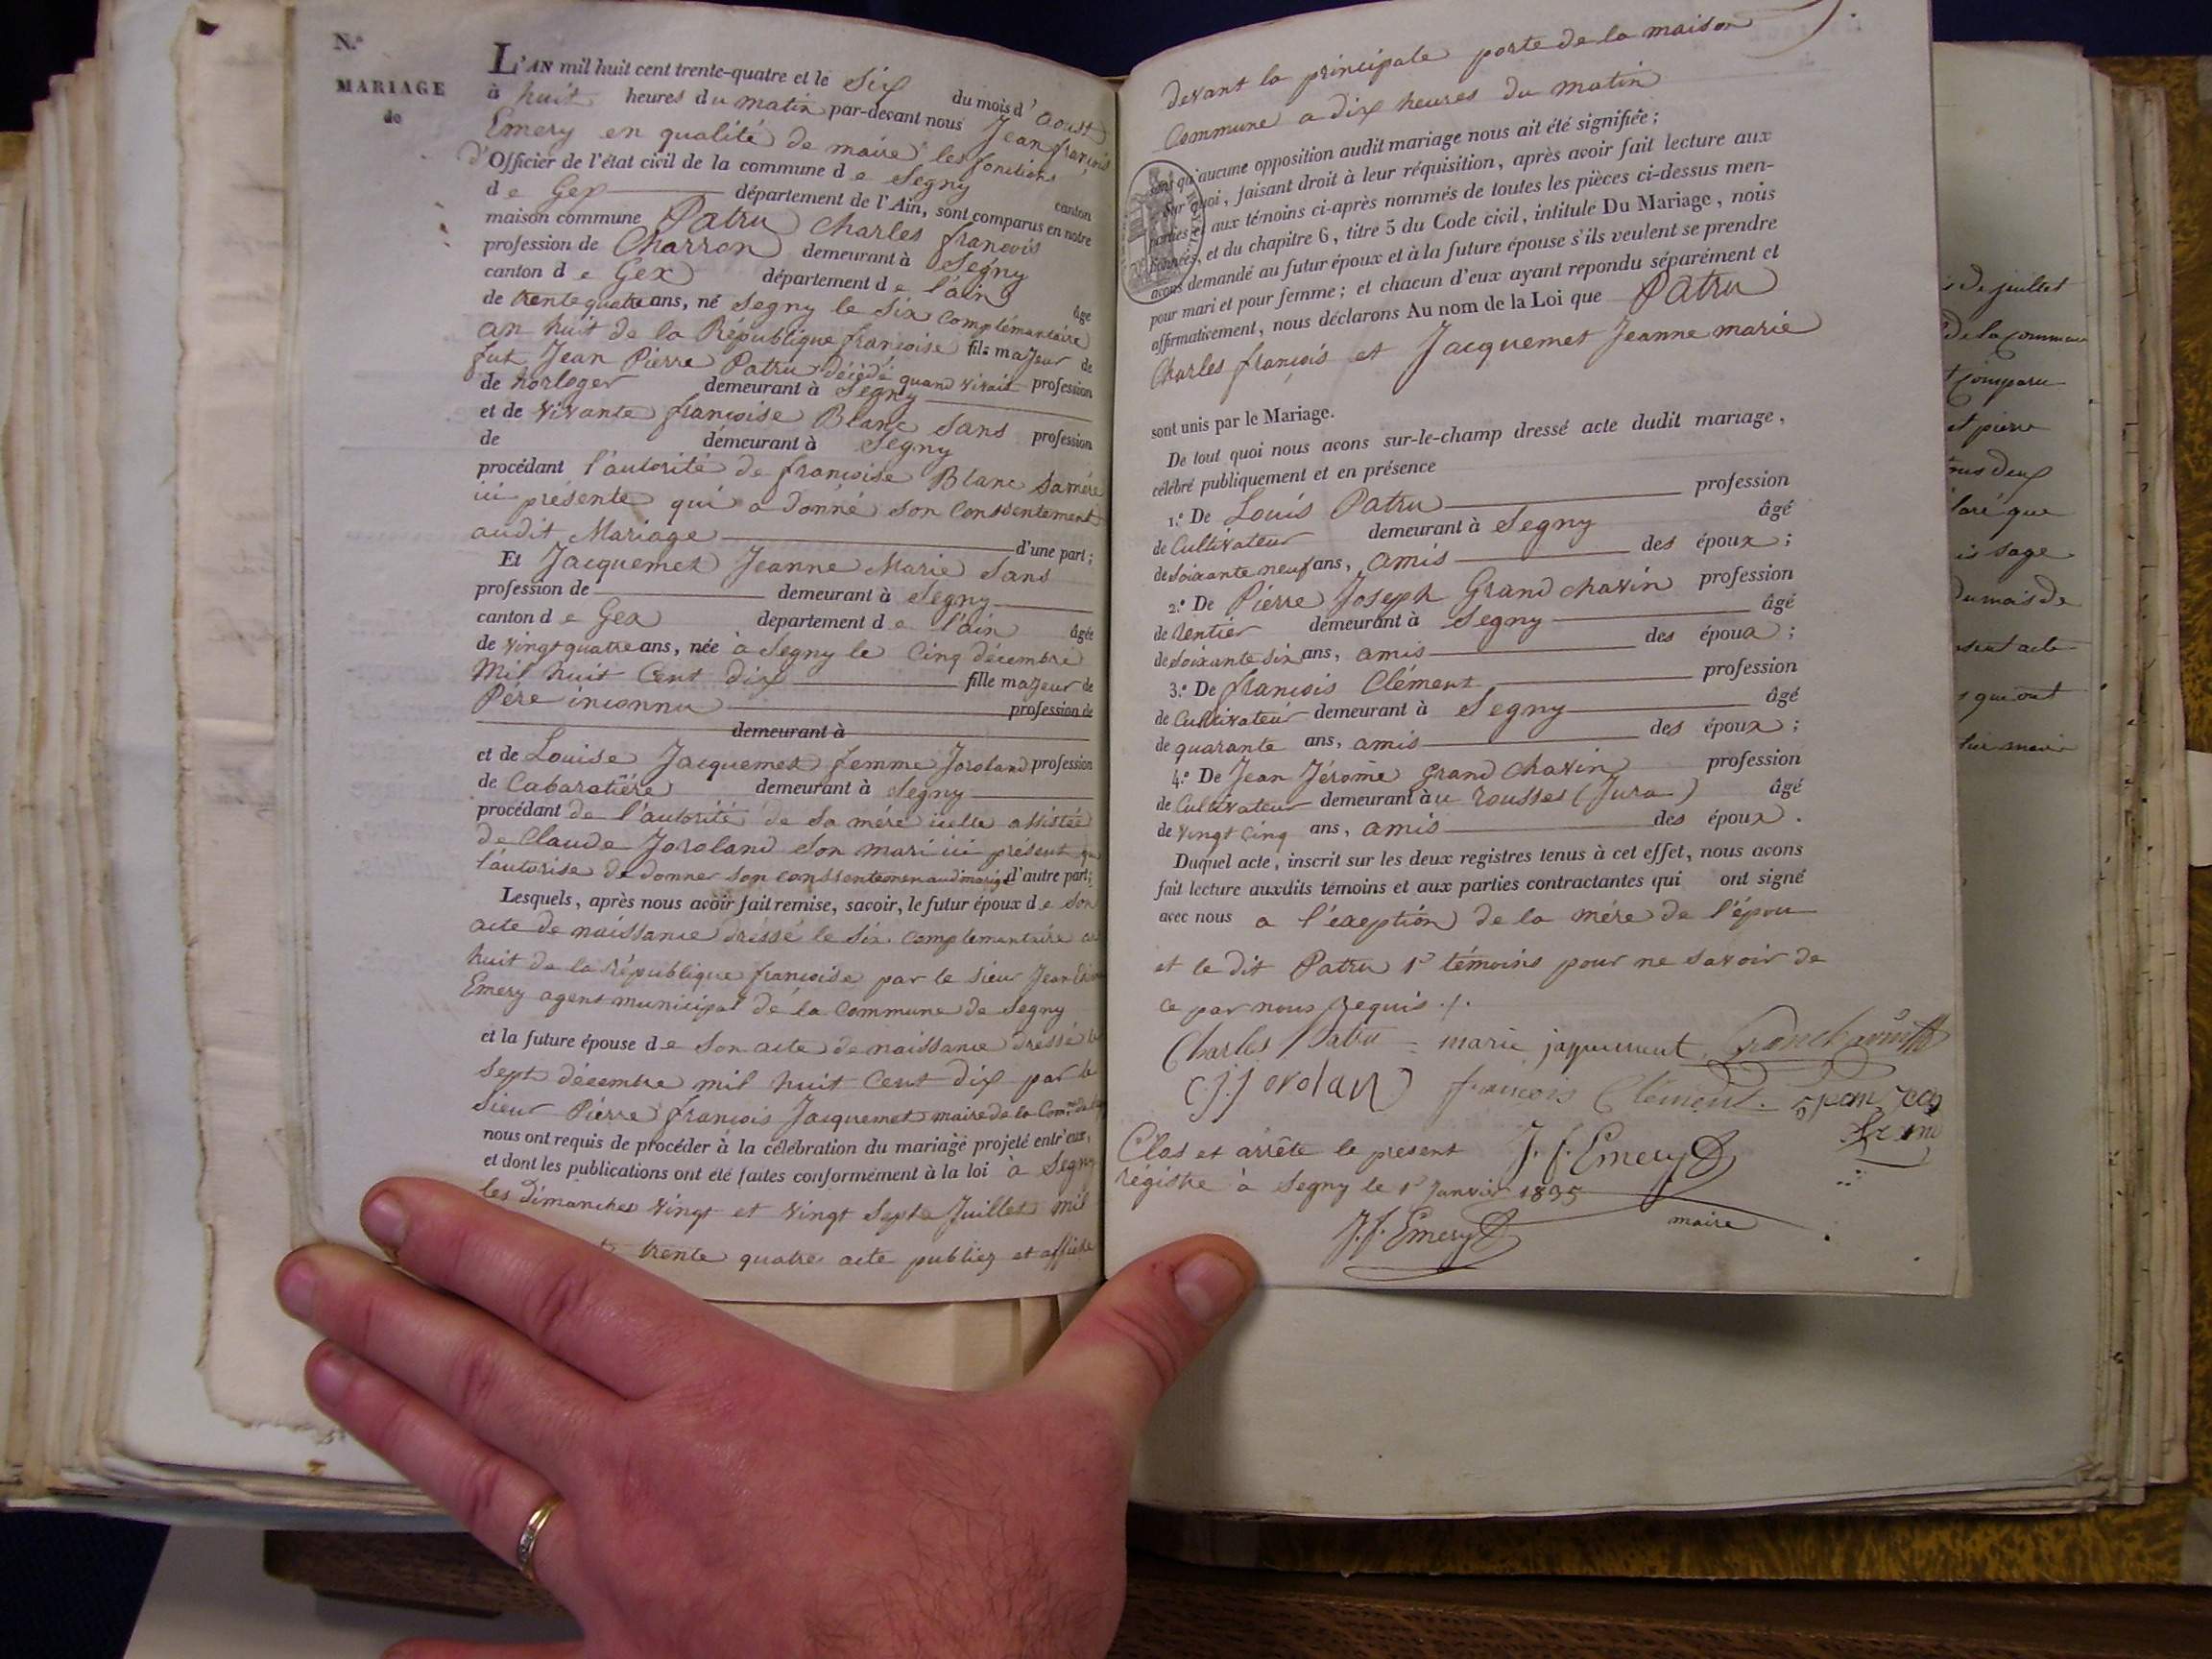 N.º
MARIAGE
de
L'AN mil huit cent trente-quatre et le Six du mois d'aoust
à huit heures du matin par-devant nous Jean françois
Emery en qualité de maire les fonctions
d'Officier de l'état civil de la commune de Segny canton
de Gex département de l'Ain, sont comparus en notre
maison commune Patru Charles françois
profession de Charron demeurant à Segny
canton de Gex département de l'ain âgé
de trente quatre ans, né Segny le Six complémantaire
an huit de la République françoise fils majeur de
fut Jean Pierre Patru décédé quand vivait profession
de horloger demeurant à Segny
et de vivante françoise Blanc Sans profession
de demeurant à Segny
procédant l'autorité de françoise Blanc Samére
ici présente qui a donné son Conssentement
audit Mariage d'une part;
Et Jacquemet Jeanne Marie Sans
profession de demeurant à Segny
canton de Gex département de l'ain âgée
de vingt quatre ans, née à Segny le Cinq décembre
Mil huit Cent dix fille majeur de
Pére inconnu profession de
demeurant à
et de Louise Jacquemet femme Joroland profession
de Cabaratiére demeurant à Segny
procédant de l'autorité de Sa mére icelle assistée
de Claude Joroland Son mari ici présent qui
l'autorise de donner son conssentemen audi mariage d'autre part;
Lesquels, après nous avoir fait remise, savoir, le futur époux de Son
acte de naissance dréssé le Six. Complementaire an
huit de la république françoise par le Sieur Jean
Emery agent municipal de la Commune de Segny
et la future épouse de Son acte de naissance dréssé le
Sept décembre mil huit Cent dix par le
Sieur Piérre françois Jacquemet maire de la Com.ne de
nous ont requis de procéder à la célébration du mariage projeté entr'eux,
et dont les publications ont été faites conformément à la loi à Segny
les dimanches vingt et vingt Sept Juillet mil
trente quatre acte publiez et affiché
devant la principale porte de la maison
Commune a dix heures du matin
sans qu'aucune opposition audit mariage nous ait été signifiée;
Sur quoi, faisant droit à leur réquisition, après avoir fait lecture aux
parties et aux témoins ci-après nommés de toutes les pièces ci-dessus men-
tionnées, et du chapitre 6, titre 5 du Code civil, intitulé Du Mariage, nous
avons demandé au futur époux et à la future épouse s'ils veulent se prendre
pour mari et pour femme; et chacun d'eux ayant répondu séparément et
affirmativement, nous déclarons Au nom de la Loi que Patru
Charles françois et Jacquemet Jeanne marie
sont unis par le Mariage.
De tout quoi nous avons sur-le-champ dressé acte dudit mariage,
célébré publiquement et en présence
1.º De Louis Patru profession
de Cultivateur demeurant à Segny âgé
de Soixante neuf ans, amis des époux;
2.º De Piérre Joseph Grand chavin profession
de rentier demeurant à Segny âgé
de Soixante Six ans, amis des époux;
3.º De françois Clément profession
de Cultivateur demeurant à Segny âgé
de quarante ans, amis des époux;
4.º De Jean Jérome Grand Chavin profession
de Cultivateur demeurant àu rousses (Jura) âgé
de vingt Cinq ans, amis des époux.
Duquel acte, inscrit sur les deux registres tenus à cet effet, nous avons
fait lecture auxdits témoins et aux parties contractantes qui ont signé
avec nous a l'exeption de la mére de l'épou
et le dit Patru 1r témoins pour ne Savoir de
ce par nous Requis ./.
Charles Patru marie jaquemet
françois Clement
Clos et arrête le présent J. f. Emery
régistre à Segny le 1r Janvier 1835
J. f. Emery maire